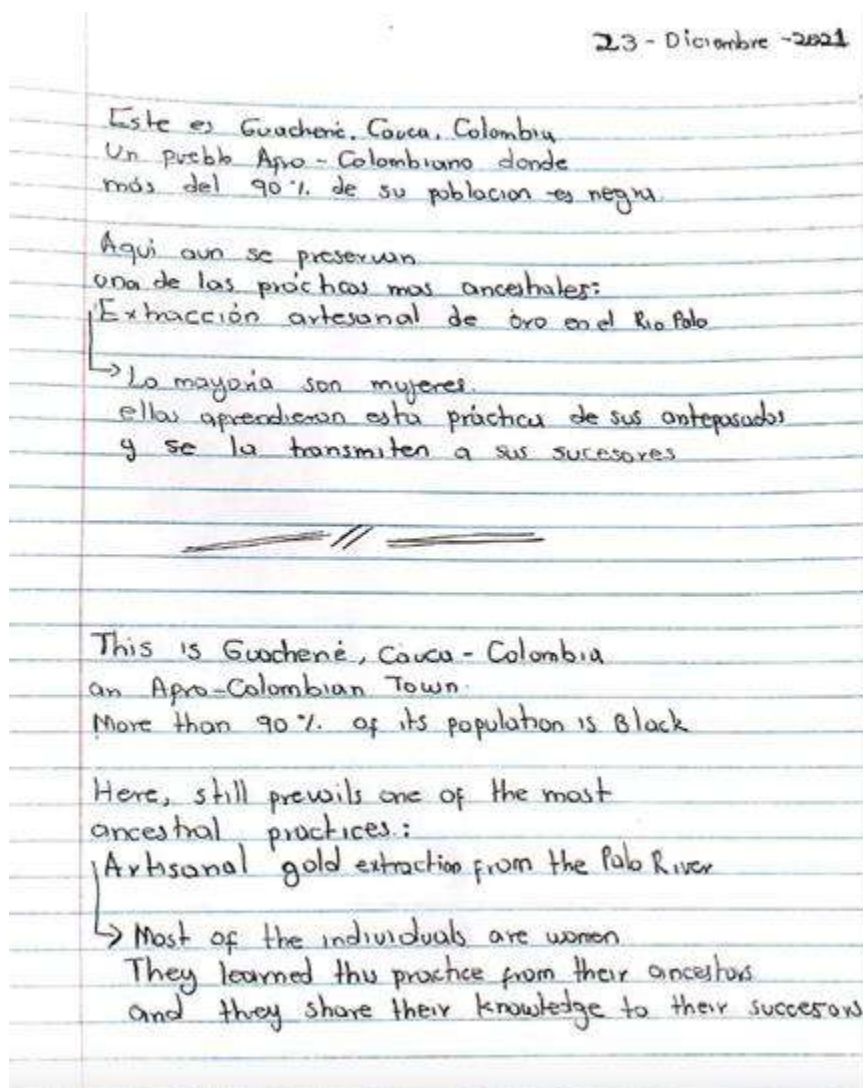 23 - Diciembre - 2021
Este es Guachené, Cauca, Colombia
Un pueblo Afro - Colombiano donde
más del 90% de su poblacion es negra.
Aqui aun se preservan
una de las prácticas mas ancestrales:
Extracción artesanal de oro en el Rio Palo
→ La mayoria son mujeres.
ellas aprendieron esta práctica de sus antepasados
y se la transmiten a sus sucesores
This is Guachené, Cauca - Colombia
an Afro-Colombian Town.
More than 90% of its population is Black
Here, still prevails one of the most
ancestral practices:
Artisanal gold extraction from the Palo River
→ Most of the individuals are women
They learned this practice from their ancestors
and they share their knowledge to their succesors